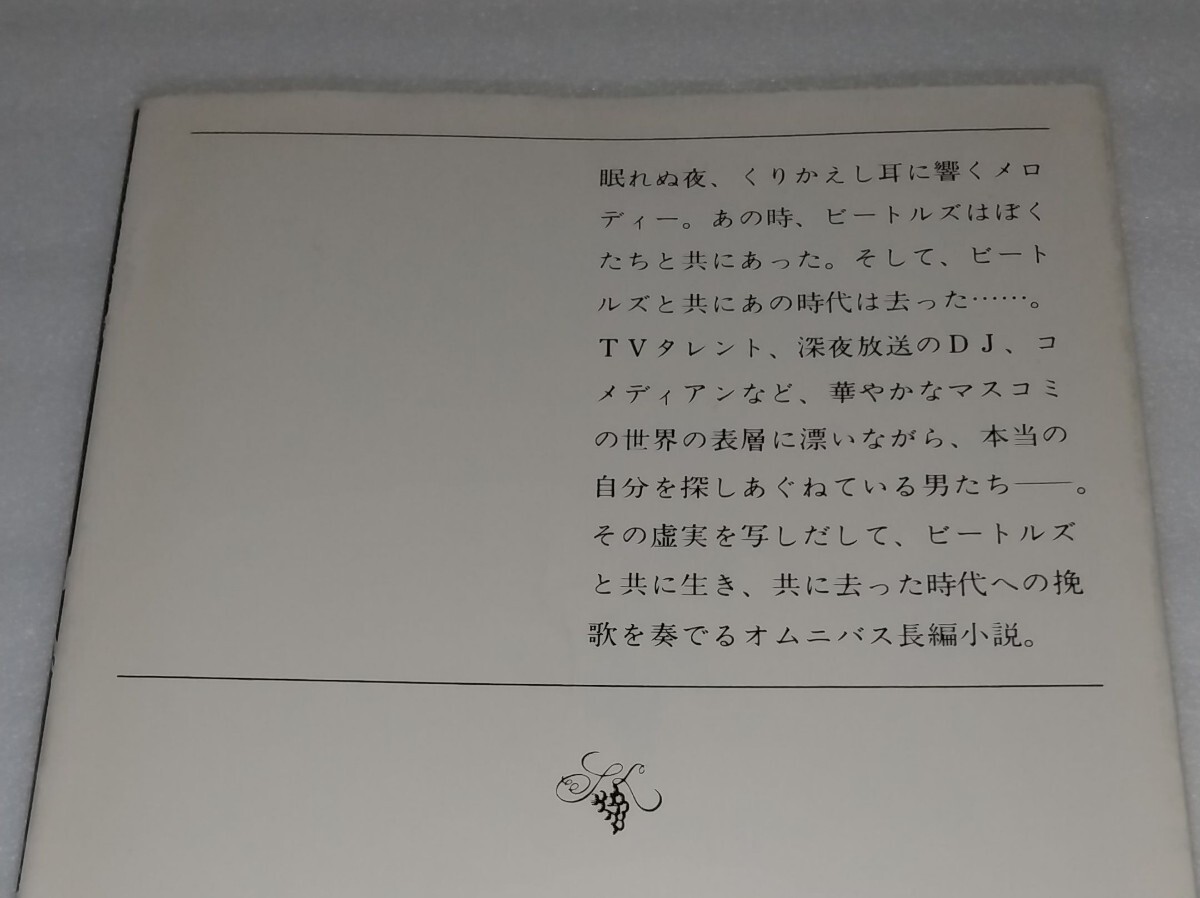 眠れぬ夜、くりかえし耳に響くメロ
ディー。あの時、ビートルズはぼく
たちと共にあった。そして、ビート
ルズと共にあの時代は去った……。
TVタレント、深夜放送のDJ、コ
メディアンなど、華やかなマスコミ
の世界の表層に漂いながら、本当の
自分を探しあぐねている男たち――。
その虚実を写しだして、ビートルズ
と共に生き、共に去った時代への挽
歌を奏でるオムニバス長編小説。